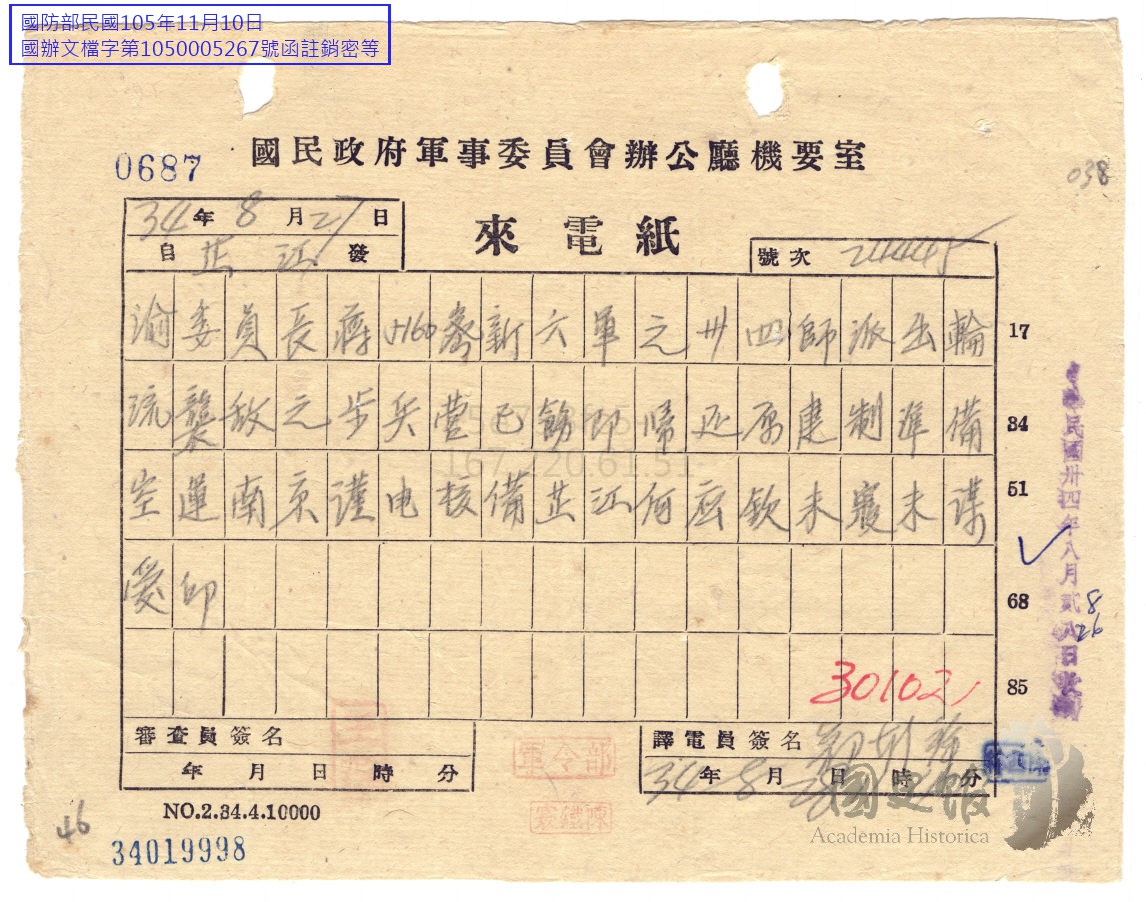 國防部民國105年11月10日
國辦文檔字第1050005267號函註銷密等
0687
國民政府軍事委員會辦公廳機要室
038
34年8月27日
自芷江發
來電紙
號次 24445
渝委員長蔣 密新六軍元卅四師派出輪 17
流襲敵之步兵營已飭即歸還原建制準備 34
空運南京謹電核備芷江何應欽未襄未謀 51
愛印
68
301021
85
民國卅四年八月貳八日
審查員簽名
年 月 日 時 分
軍令部
譯電員簽名
34年8月28日 時 分
NO.2.34.4.10000
46
34019998
國史館
Academia Historica